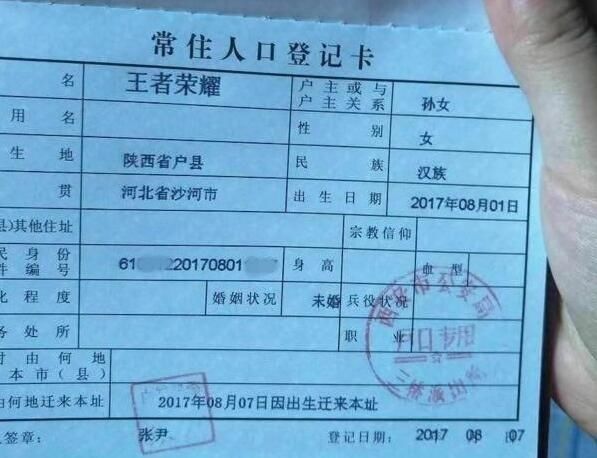 常住人口登记卡
名 王者荣耀 户主或与户主关系 孙女
用名 性别 女
生地 陕西省户县 民族 汉族
贯 河北省沙河市 出生日期 2017年08月01日
县)其他住址 宗教信仰
民身份件编号 61 220170801 身高 血型
化程度 婚姻状况 未婚 兵役状况
务处所 职业
时由何地本市(县)
由何地迁来本址 2017年08月07日因出生迁来本址
人签章: 张尹 登记日期: 2017 08 07
西安市公安局
户口专用
三桥派出所